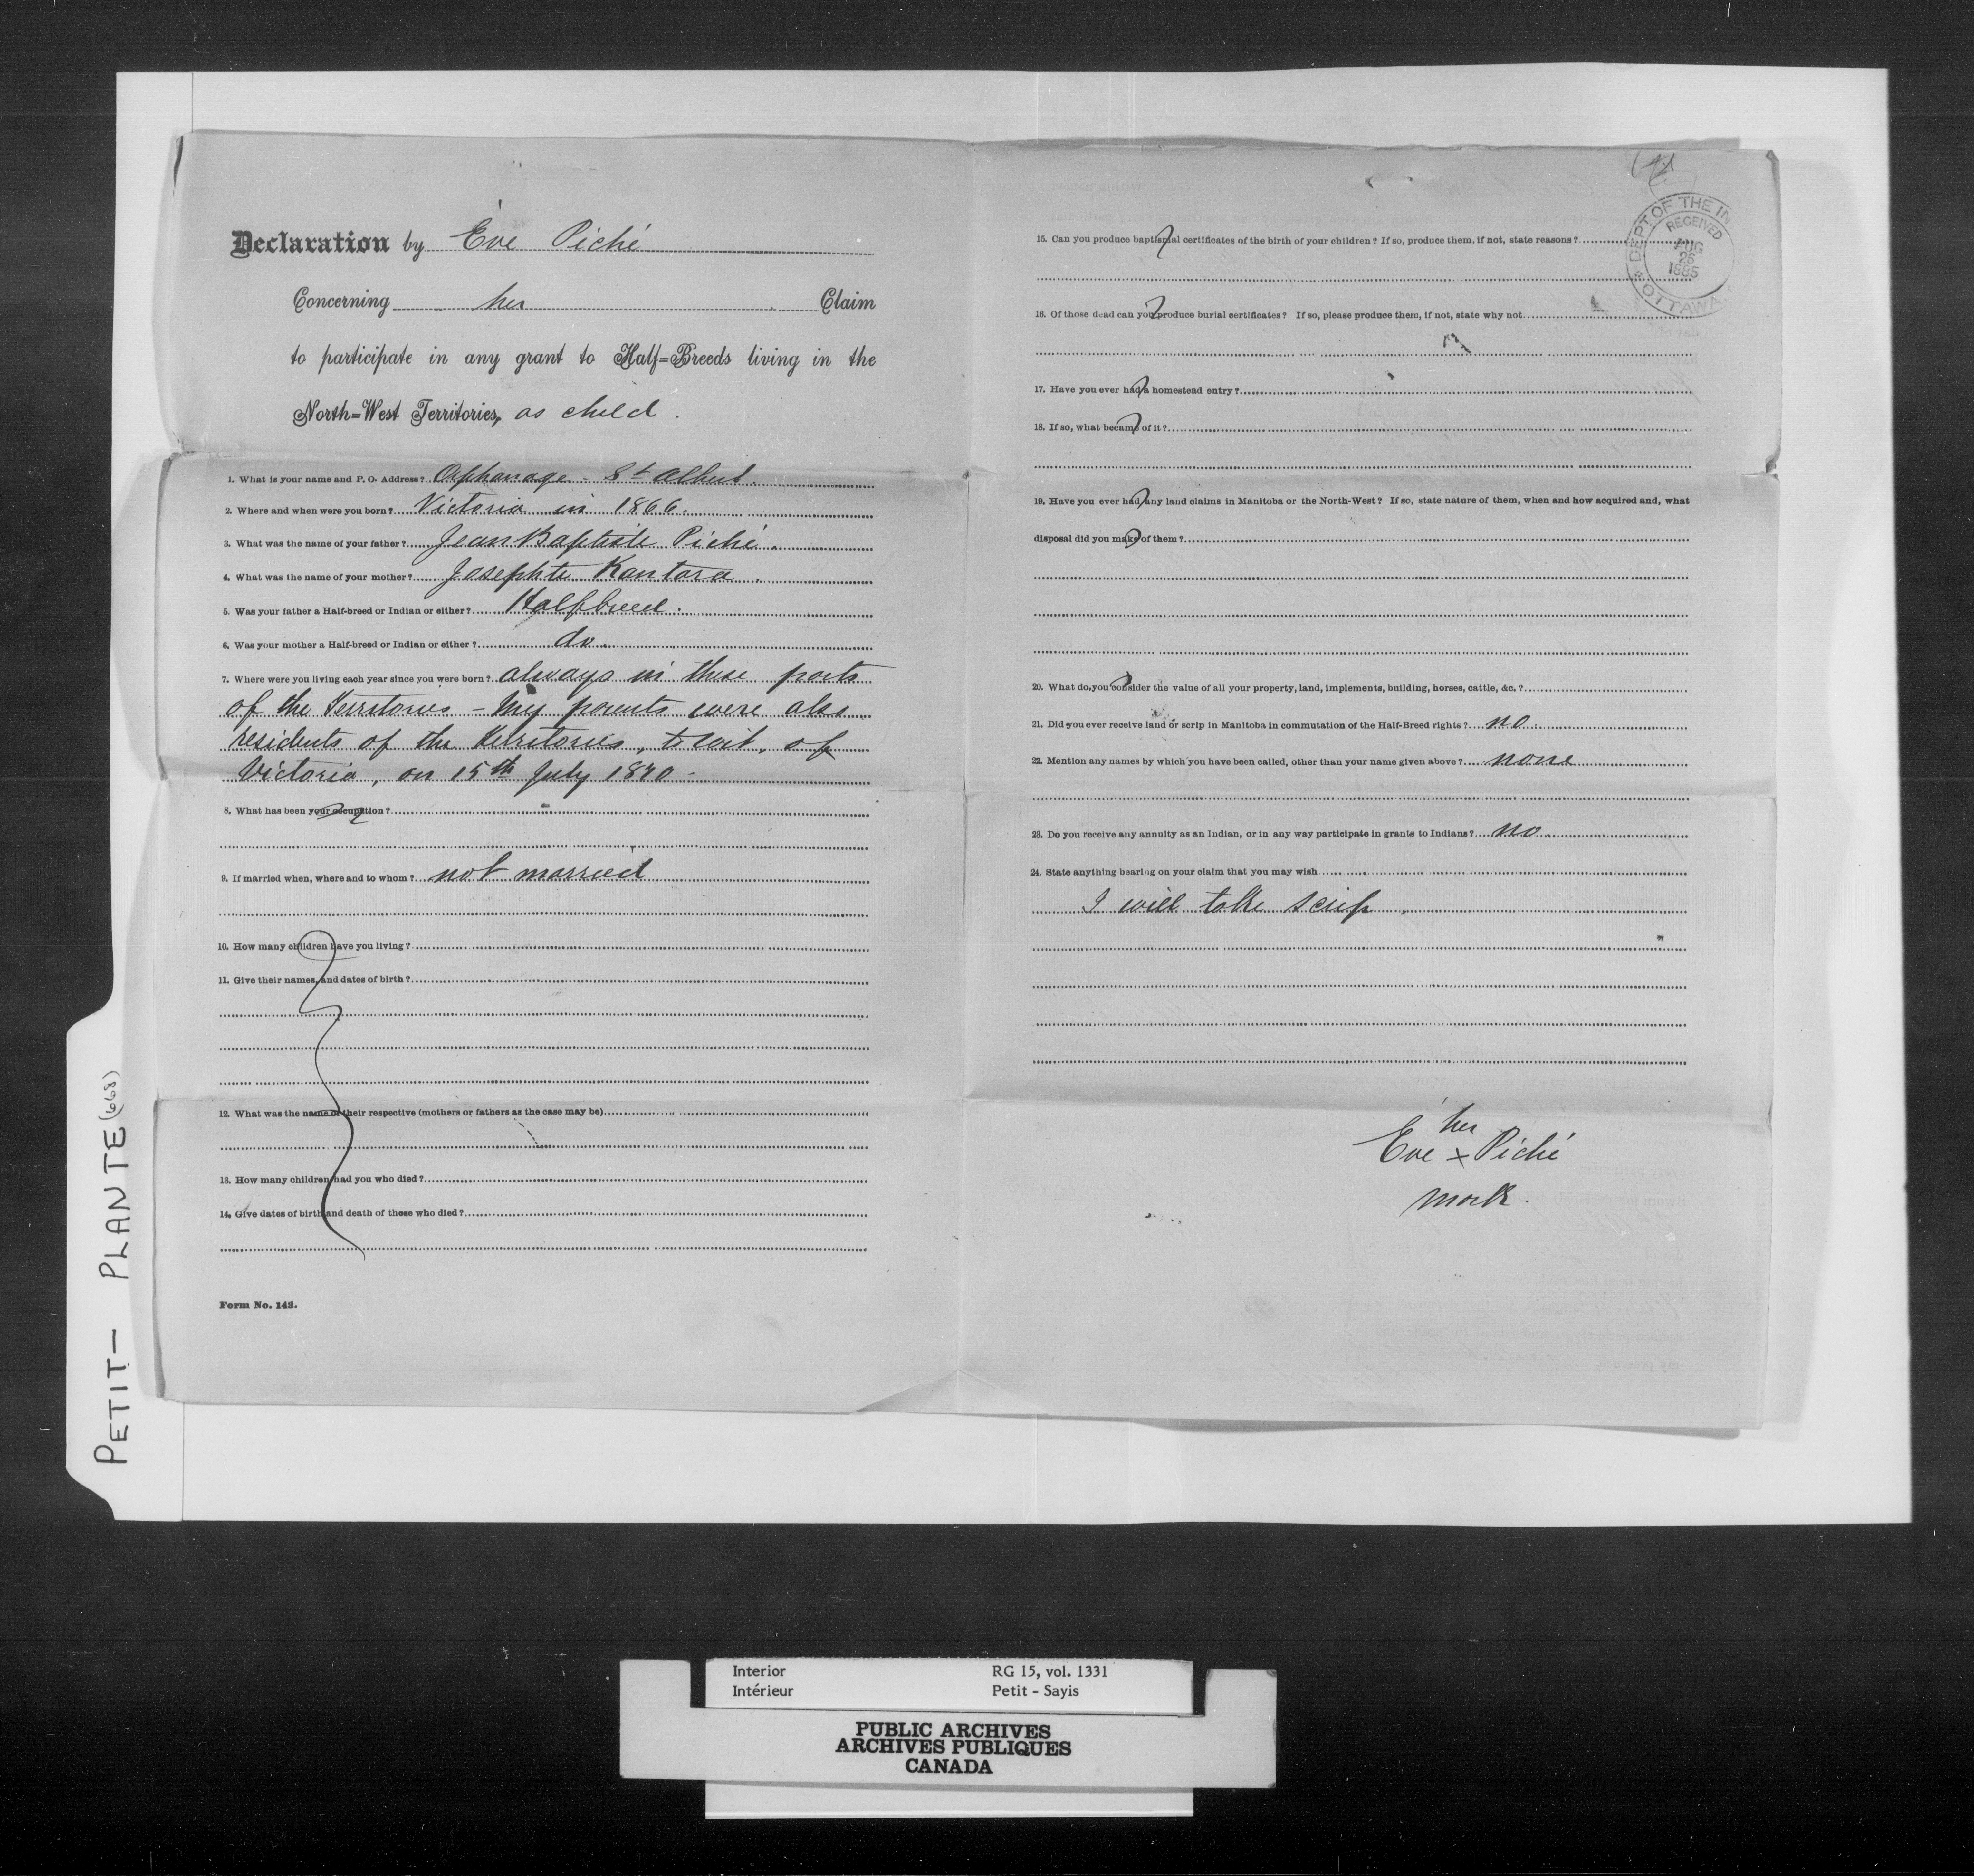 Declaration by Ève Piché
Concerning her Claim
to participate in any grant to Half=Breeds living in the
North=West Territories, as child.
1. What is your name and P. O. Address? Orphanage - St Albert.
2. Where and when were you born? Victoria in 1866.
3. What was the name of your father? Jean Baptiste Piché.
4. What was the name of your mother? Josephte Kantara.
5. Was your father a Half-breed or Indian or either? Halfbreed.
6. Was your mother a Half-breed or Indian or either? do.
7. Where were you living each year since you were born? always in these parts
of the Territories - My parents were also
residents of the Territories, to wit, of
Victoria, on 15th July 1870.
8. What has been your occupation?
9. If married when, where and to whom? not married
10. How many children have you living?
11. Give their names, and dates of birth?
12. What was the name of their respective (mothers or fathers as the case may be)
13. How many children had you who died?
14. Give dates of birth and death of those who died?
Form No. 143.
15. Can you produce baptismal certificates of the birth of your children? If so, produce them, if not, state reasons?
16. Of those dead can you produce burial certificates? If so, please produce them, if not, state why not
17. Have you ever had a homestead entry?
18. If so, what became of it?
19. Have you ever had any land claims in Manitoba or the North-West? If so, state nature of them, when and how acquired and, what
disposal did you make of them?
20. What do you consider the value of all your property, land, implements, building, horses, cattle, &c.?
21. Did you ever receive land or scrip in Manitoba in commutation of the Half-Breed rights? no.
22. Mention any names by which you have been called, other than your name given above? none
23. Do you receive any annuity as an Indian, or in any way participate in grants to Indians? no.
24. State anything bearing on your claim that you may wish
I will take scrip.
her
Eve x Piché
mark.
DEPT OF THE IN
RECEIVED
AUG
26
1885
OTTAWA
PETIT - PLANTE (668)
Interior RG 15, vol. 1331
Intérieur Petit - Sayis
PUBLIC ARCHIVES
ARCHIVES PUBLIQUES
CANADA